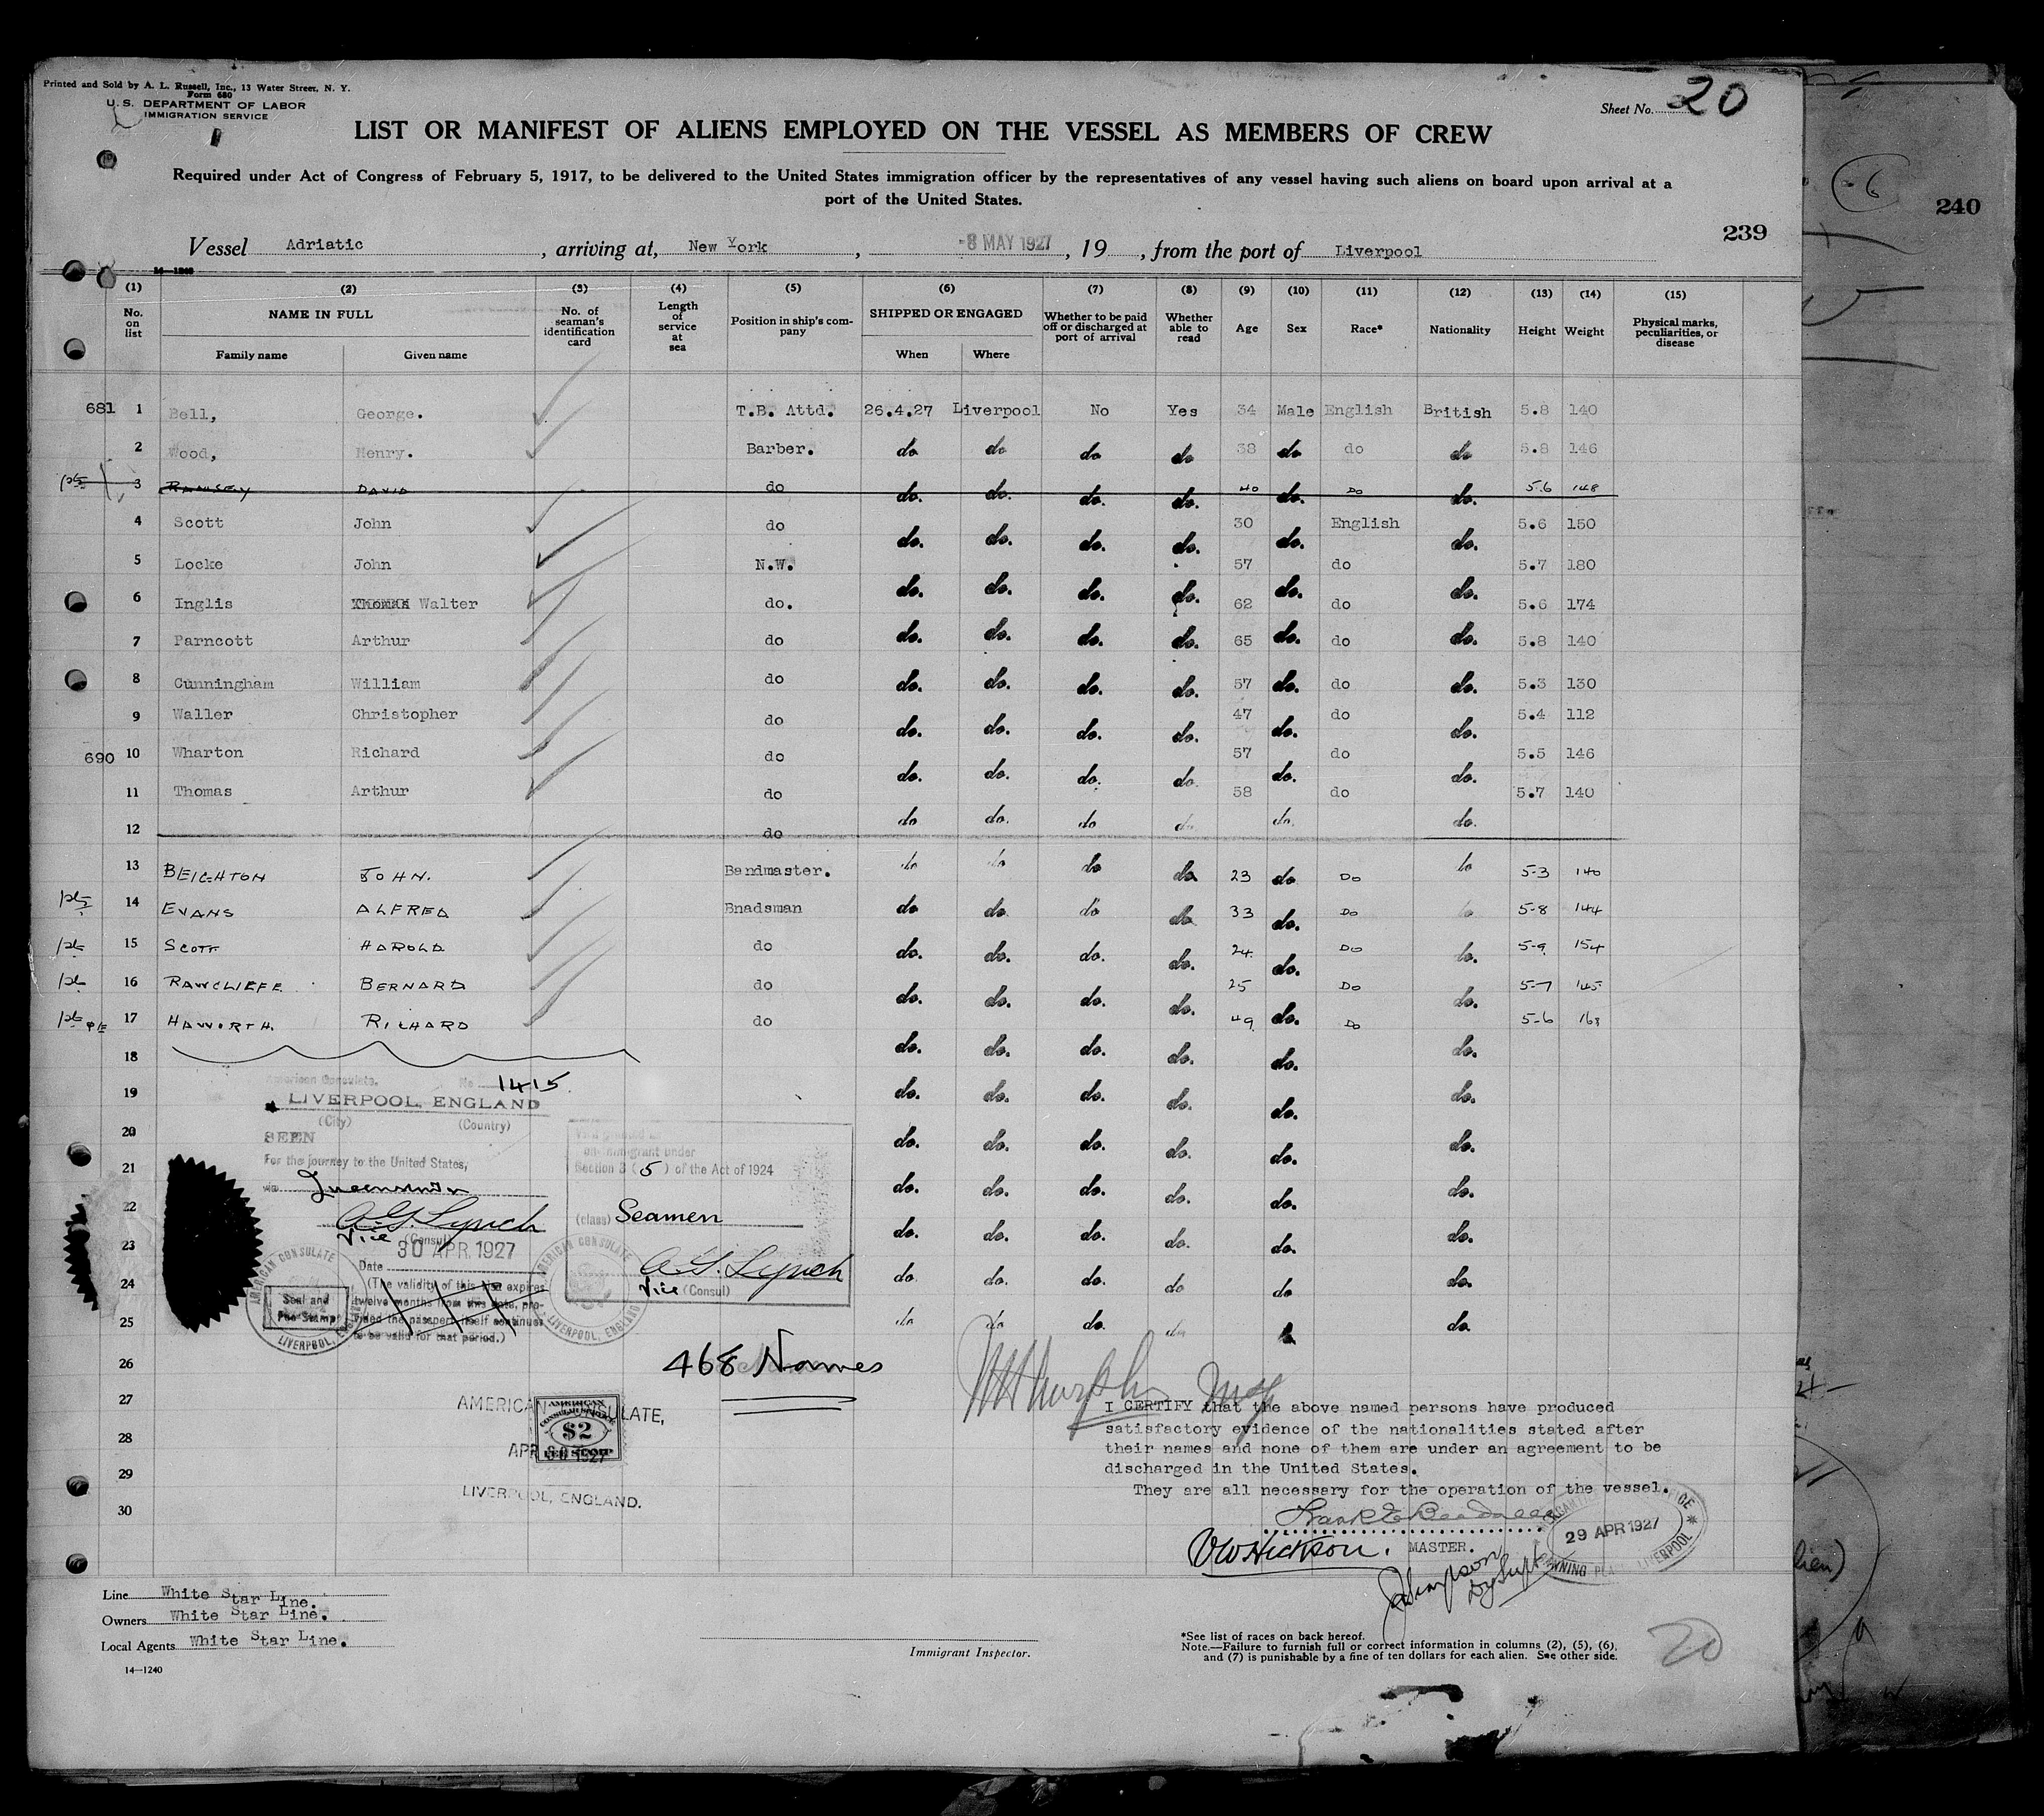 Printed and Sold by A. L. Russell, Inc., 13 Water Street, N. Y.
Form 680
U. S. DEPARTMENT OF LABOR
IMMIGRATION SERVICE
Sheet No. 20
LIST OR MANIFEST OF ALIENS EMPLOYED ON THE VESSEL AS MEMBERS OF CREW
Required under Act of Congress of February 5, 1917, to be delivered to the United States immigration officer by the representatives of any vessel having such aliens on board upon arrival at a
port of the United States.
240
239
Vessel Adriatic, arriving at, New York, -8 MAY 1927, 19, from the port of Liverpool
14—1240
(1) (2) (3) (4) (5) (6) (7) (8) (9) (10) (11) (12) (13) (14) (15)
No. on list NAME IN FULL Family name Given name No. of seaman's identification card Length of service at sea Position in ship's company SHIPPED OR ENGAGED When Where Whether to be paid off or discharged at port of arrival Whether able to read Age Sex Race* Nationality Height Weight Physical marks, peculiarities, or disease
681 1 Bell, George. T.B. Attd. 26.4.27 Liverpool No Yes 34 Male English British 5.8 140
2 Wood, Henry. Barber. do do do do 38 do do do 5.8 146
3 RAMSEY DAVID do do. do. do. do. 40 do. DO do. 5.6 148
4 Scott John do do. do. do. do. 30 do. English do. 5.6 150
5 Locke John N.W. do. do. do. do. 57 do. do do. 5.7 180
6 Inglis Walter do. do. do. do. do. 62 do. do do. 5.6 174
7 Parncott Arthur do do. do. do. do. 65 do. do do. 5.8 140
8 Cunningham William do do. do. do. do. 57 do. do do. 5.3 130
9 Waller Christopher do do. do. do. do. 47 do. do do. 5.4 112
690 10 Wharton Richard do do. do. do. do. 57 do. do do. 5.5 146
11 Thomas Arthur do do. do. do do 58 do. do do. 5.7 140
12 do do. do. do do do. do.
13 BEIGHTON JOHN. Bandmaster. do do do do 23 do DO do 5-3 140
14 EVANS ALFRED Bnadsman do do. do do 33 do. DO do 5-8 144
15 SCOTT HAROLD do do. do. do. do. 24 do. DO do. 5-9 154
16 RAWCLIFFE BERNARD do do. do. do. do. 25 do. DO do. 5-7 145
17 HAWORTH. RICHARD do do. do. do. do. 49 do. DO do. 5-6 168
18 do. do. do. do. do. do.
19 do. do. do. do. do. do.
20 do. do. do. do. do. do.
21 do. do. do. do. do. do.
22 do. do. do. do. do. do.
23 do. do. do. do. do. do.
24 do. do. do. do do do.
25 do. do do. do do.
26
27
28
29
30
American Consulate. No 1415
LIVERPOOL, ENGLAND
(City) (Country)
SEEN
For the journey to the United States,
via
A. G. Lynch
Vice (Consul)
Date 30 APR 1927
(The validity of this visa expires
twelve months from this date, pro-
vided the passport itself continues
to be valid for that period.)
Seal and
Fee Stamp
AMERICAN CONSULATE
LIVERPOOL, ENGLAND
Section 3 (5) of the Act of 1924
(class) Seamen
A. G. Lynch
Vice (Consul)
AMERICAN CONSULATE
LIVERPOOL, ENGLAND
468 Names
AMERICAN CONSULATE,
APR 30 1927
LIVERPOOL, ENGLAND.
AMERICAN
CONSULAR SERVICE
$2
FEE STAMP
I CERTIFY that the above named persons have produced
satisfactory evidence of the nationalities stated after
their names and none of them are under an agreement to be
discharged in the United States.
They are all necessary for the operation of the vessel.
MASTER.
29 APR 1927
LIVERPOOL
Line White Star Line.
Owners White Star Line.
Local Agents White Star Line.
14—1240
Immigrant Inspector.
*See list of races on back hereof.
Note.—Failure to furnish full or correct information in columns (2), (5), (6),
and (7) is punishable by a fine of ten dollars for each alien. See other side.
20